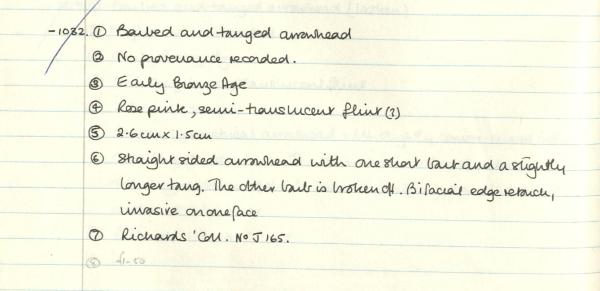 -1032. ① Barbed and tanged arrowhead
② No provenance recorded.
③ Early Bronze Age
④ Rose pink, semi-translucent flint (?)
⑤ 2.6cm x 1.5cm
⑥ Straight sided arrowhead with one short barb and a slightly
longer tang. The other barb is broken off. Bifacial edge retouch,
invasive on one face
⑦ Richards' Coll. No J 165.
⑧ £1-50